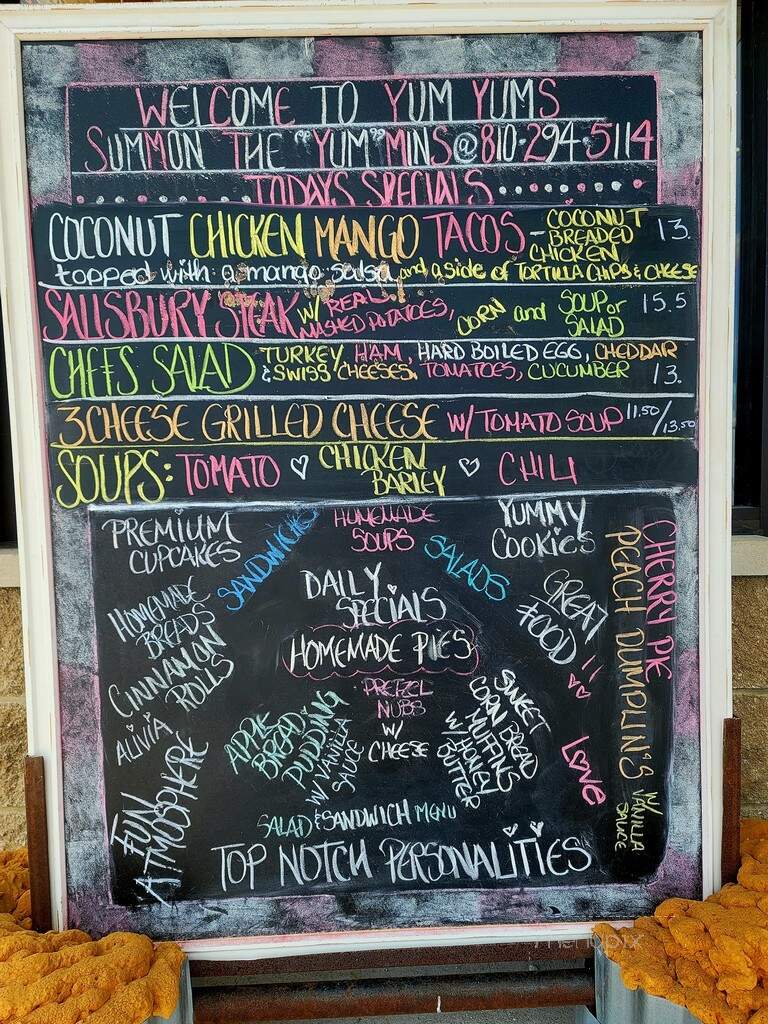 WELCOME TO YUM YUMS
SUMMON THE "YUM" MINS @ 810-294-5114
TODAYS SPECIALS
COCONUT CHICKEN MANGO TACOS - COCONUT BREADED CHICKEN 13.
topped with a mango salsa and a side of TORTILLA CHIPS & CHEESE
SALISBURY STEAK W/ REAL MASHED POTATOES, CORN and SOUP or SALAD 15.5
CHEFS SALAD TURKEY, HAM, HARD BOILED EGG, CHEDDAR
& SWISS CHEESES, TOMATOES, CUCUMBER 13.
3 CHEESE GRILLED CHEESE W/ TOMATO SOUP 11.50/13.50
SOUPS: TOMATO ♡ CHICKEN BARLEY ♡ CHILI
PREMIUM
CUPCAKES
SANDWICHES
HOMEMADE
SOUPS
SALADS
YUMMY
COOKIES
CHERRY PIE
PEACH DUMPLIN'S W/ VANILLA SAUCE
HOMEMADE
BREADS
DAILY
SPECIALS
GREAT
FOOD !!
HOMEMADE PIES
CINNAMON
ROLLS
PRETZEL
NUBS
W/
CHEESE
SWEET
CORN BREAD
MUFFINS
W/ HONEY
BUTTER
ALIVIA
APPLE
BREAD
PUDDING
W/ VANILLA
SAUCE
LOVE
FUN
ATMOSPHERE
SALAD & SANDWICH MENU
TOP NOTCH PERSONALITIES
menupix